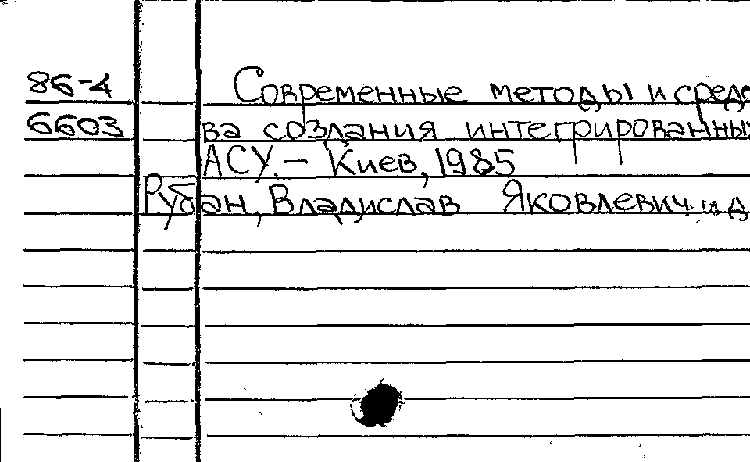 86-4 Современные методы и средс
6603 ва создания интегрированны
АСУ. – Киев, 1985
Рубан, Владислав Яковлевич и д